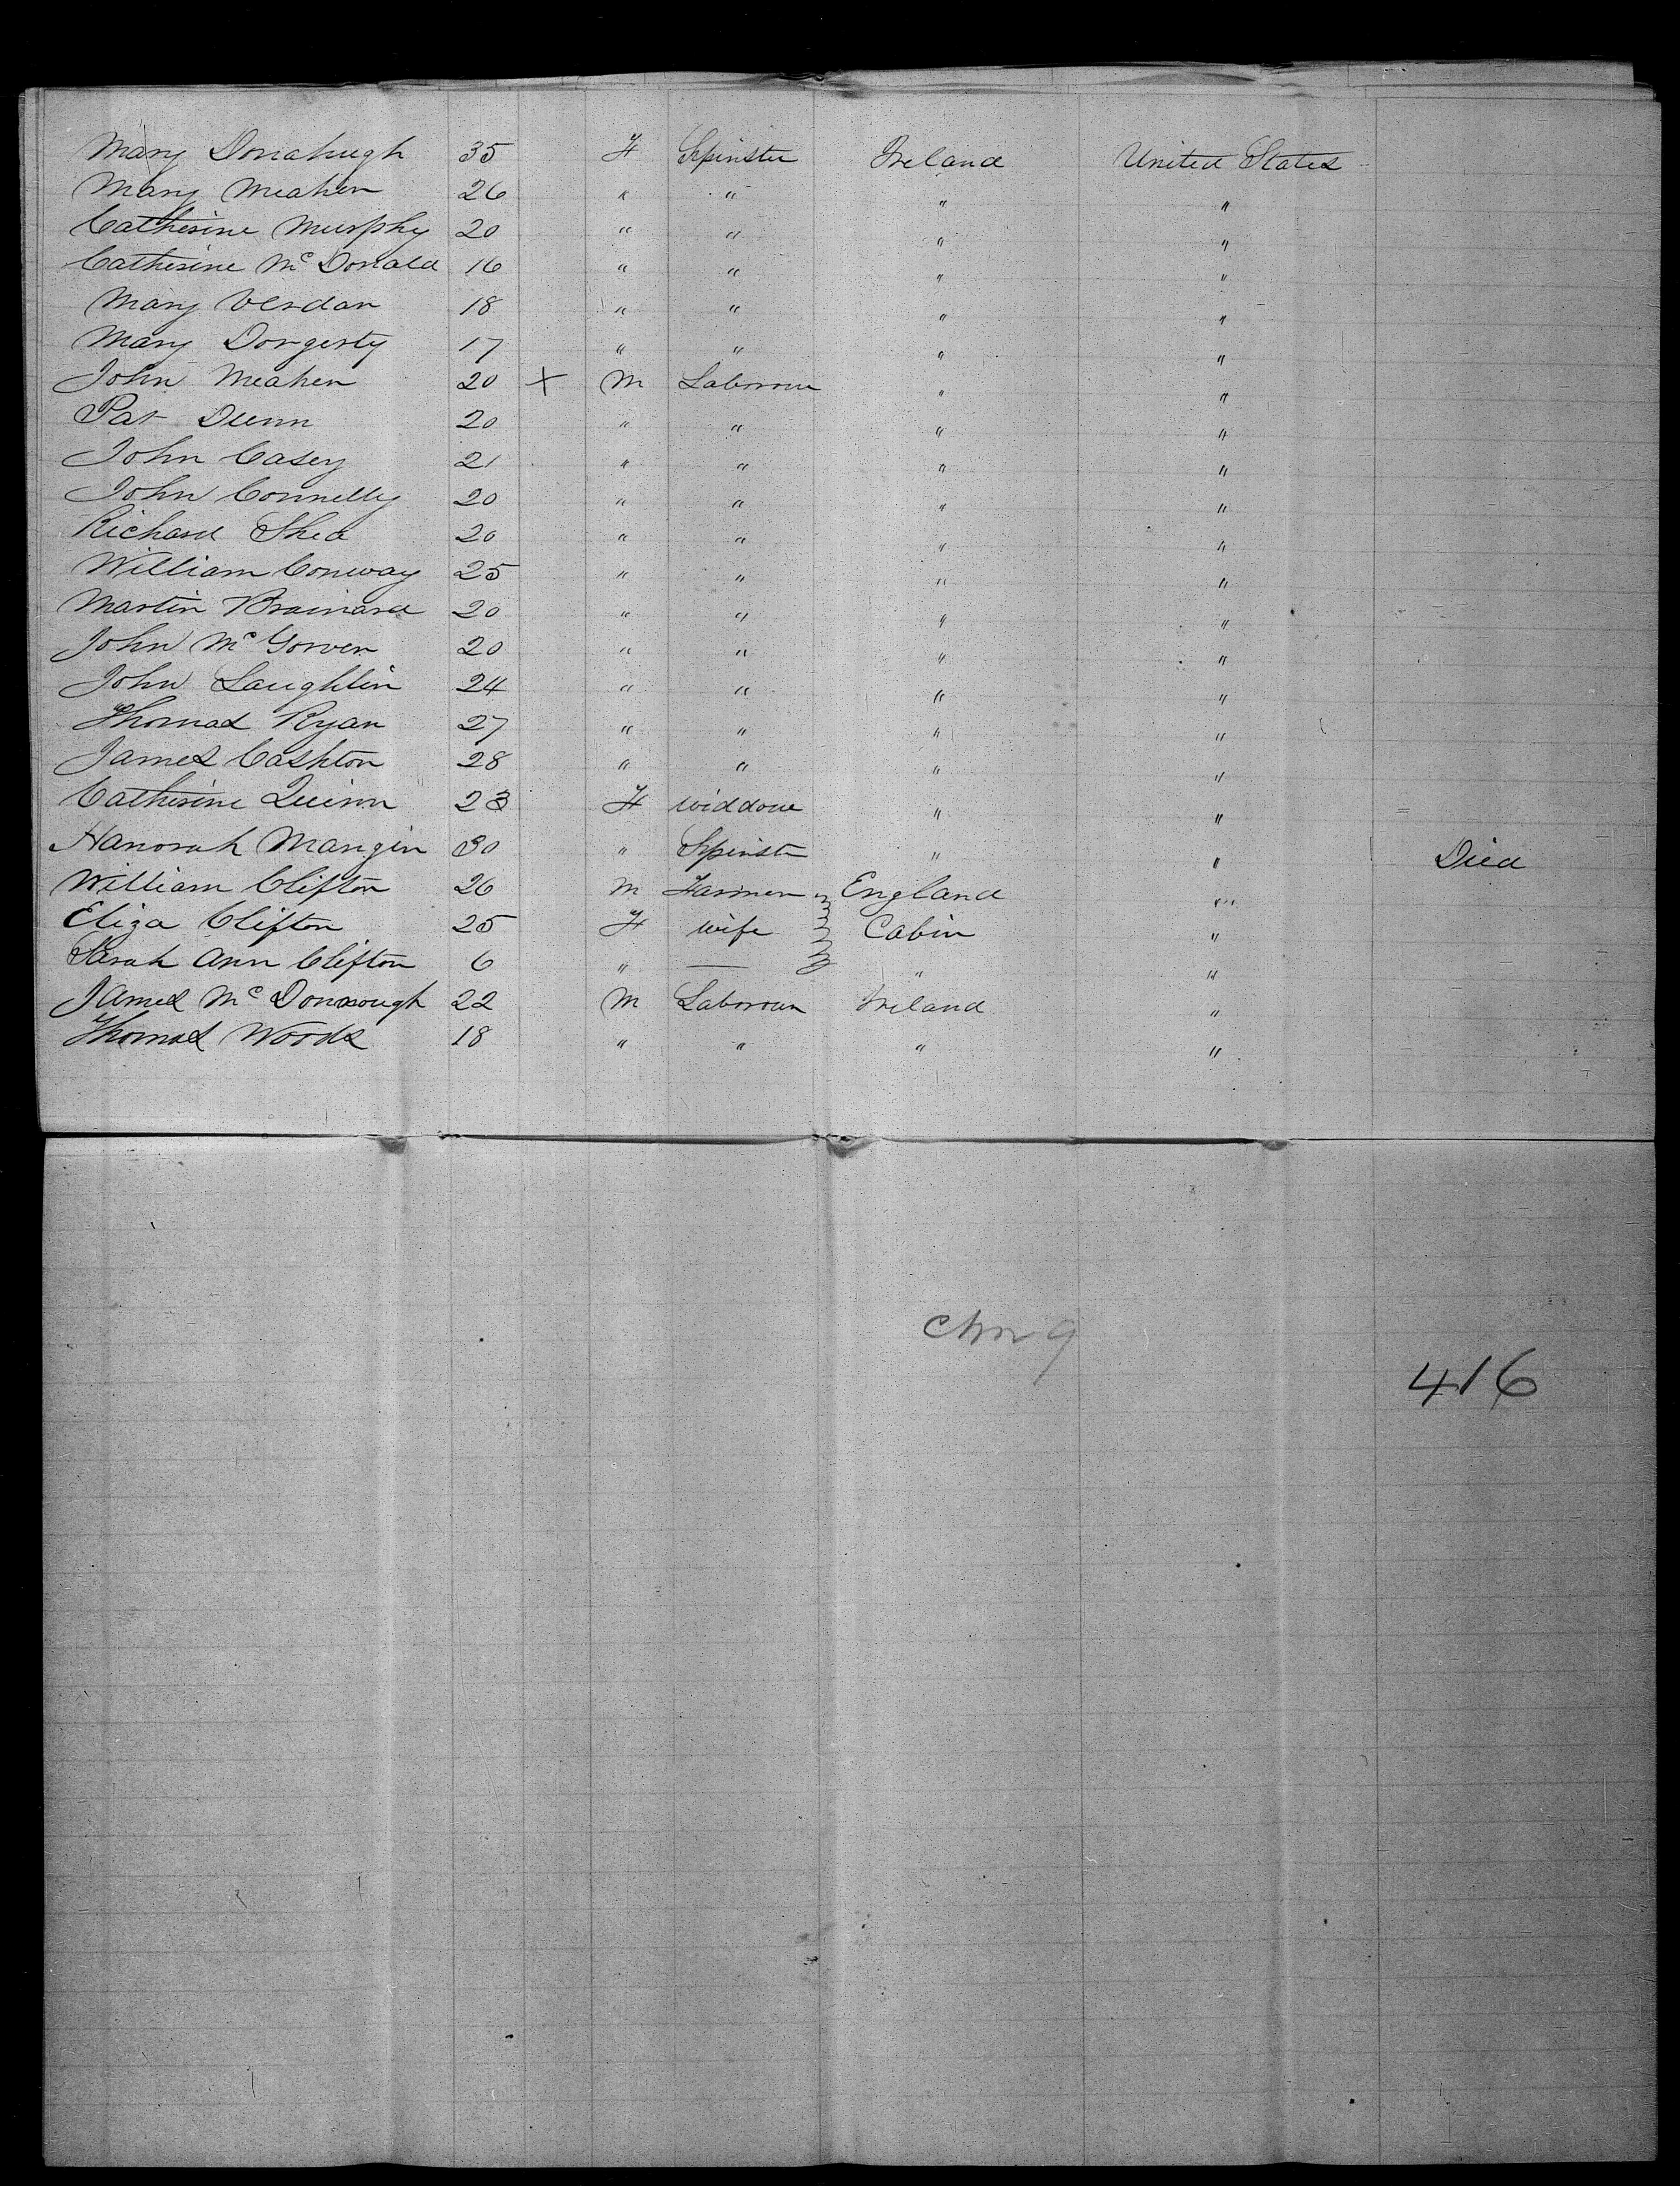 Mary Donahugh 35 F Spinster Ireland United States
Mary Meahen 26 " " " "
Catherine Murphy 20 " " " "
Catherine Mc Donald 16 " " " "
Mary Verdan 18 " " " "
Mary Dorgerty 17 " " " "
John Meahen 20 X M Labourer " "
Pat Dunn 20 " " " "
John Casey 21 " " " "
John Connelly 20 " " " "
Richard Shea 20 " " " "
William Conway 25 " " " "
Martin Brainard 20 " " " "
John Mc Gowen 20 " " " "
John Laughlin 24 " " " "
Thomas Ryan 27 " " " "
James Cashton 28 " " " "
Catherine Quinn 23 F widdow " "
Hanorah Mangin 30 " Spinster " " Died
William Clifton 26 M Farmer England "
Eliza Clifton 25 F wife Cabin "
Sarah Ann Clifton 6 " — " "
James Mc Donnough 22 M Labourer Ireland "
Thomas Woods 18 " " " "
416